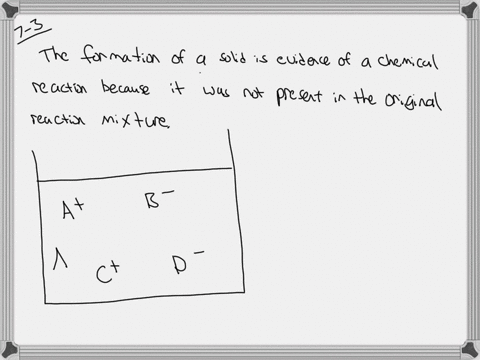 7-3
The formation of a solid is evidence of a chemical
reaction because it was not present in the original
reaction mixture.
A+ B-
C+ D-